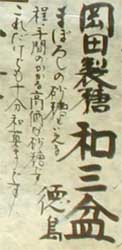 岡田製糖 和三盆
徳島
まぼろしの砂糖といえる
程、手間のかかる高価な砂糖です
これだけでも十分和菓子です!